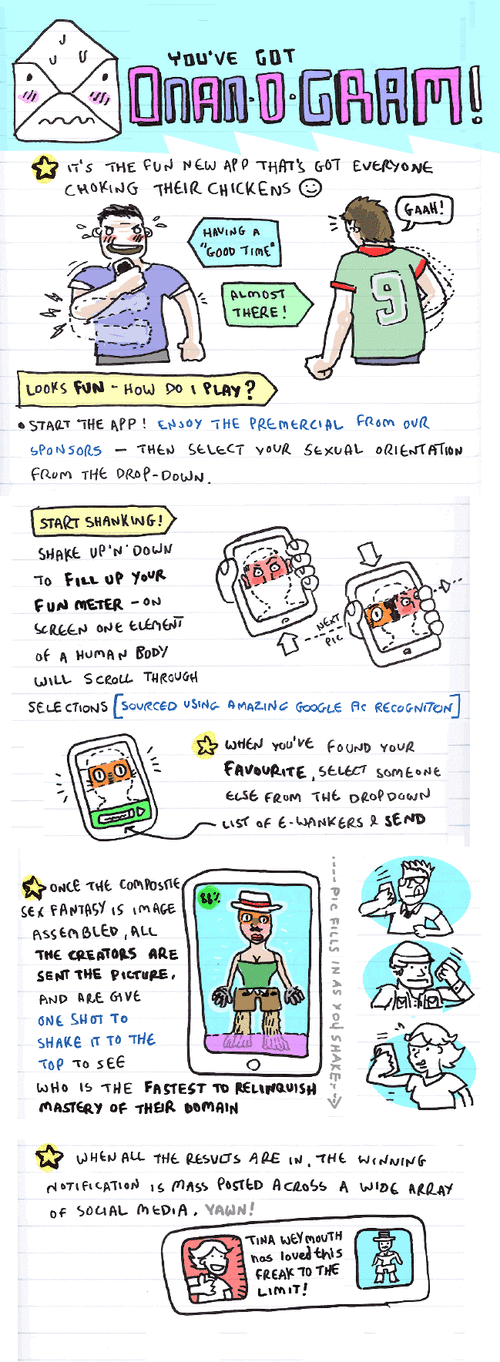 YOU'VE GOT
ONAN·O·GRAM!
IT'S THE FUN NEW APP THAT'S GOT EVERYONE
CHOKING THEIR CHICKENS
GAAH!
HAVING A
"GOOD TIME"
ALMOST
THERE!
9
LOOKS FUN - HOW DO I PLAY?
• START THE APP! ENJOY THE PREMERCIAL FROM OUR
SPONSORS — THEN SELECT YOUR SEXUAL ORIENTATION
FROM THE DROP-DOWN.
START SHANKING!
SHAKE UP 'N' DOWN
TO FILL UP YOUR
FUN METER - ON
SCREEN ONE ELEMENT
OF A HUMAN BODY
WILL SCROLL THROUGH
SELECTIONS [SOURCED USING AMAZING GOOGLE PIC RECOGNITON]
NEXT
PIC
WHEN YOU'VE FOUND YOUR
FAVOURITE, SELECT SOMEONE
ELSE FROM THE DROPDOWN
LIST OF E-WANKERS & SEND
ONCE THE COMPOSITE
SEX FANTASY IS IMAGE
ASSEMBLED, ALL
THE CREATORS ARE
SENT THE PICTURE,
AND ARE GIVE
ONE SHOT TO
SHAKE IT TO THE
TOP TO SEE
WHO IS THE FASTEST TO RELINQUISH
MASTERY OF THEIR DOMAIN
88%
PIC FILLS IN AS YOU SHAKE
WHEN ALL THE RESULTS ARE IN, THE WINNING
NOTIFICATION IS MASS POSTED ACROSS A WIDE ARRAY
OF SOCIAL MEDIA. YAWN!
TINA WEYMOUTH
has loved this
FREAK TO THE
LIMIT!